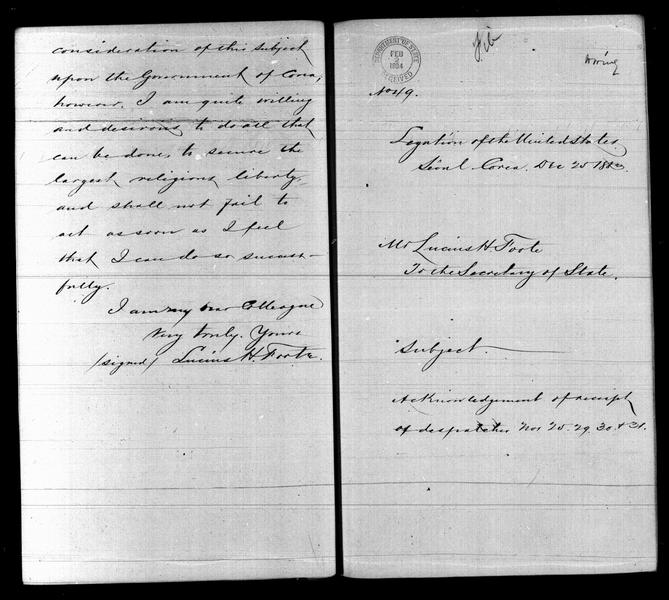 consideration of this subject
upon the Government of Corea,
however. I am quite willing
and desirous to do all that
can be done, to secure the
largest religious liberty,
and shall not fail to
act as soon as I feel
that I can do so success-
fully.
I am my dear Colleague
Very truly. Yours
(signed) Lucius H. Foote.
DEPARTMENT OF STATE
FEB
2
1884
RECEIVED
No 49.
Legation of the United States
Séoul Corea. Dec 25 1883.
Mr Lucius H Foote
To the Secretary of State.
Subject.
Acknowledgement of receipt
of despatches Nos 25. 29. 30 + 31.